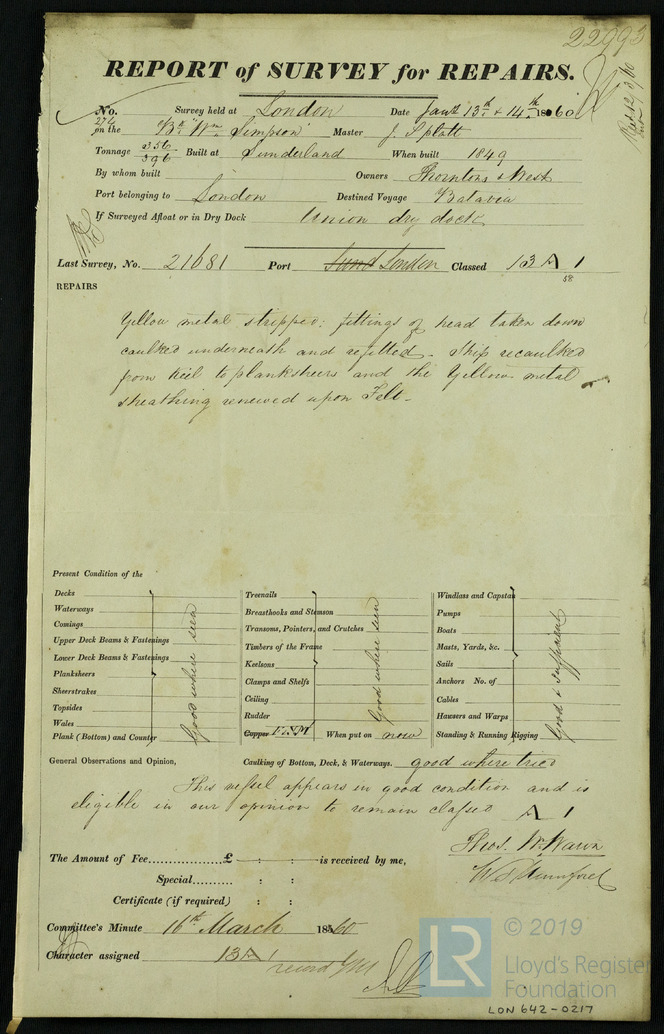 22993
REPORT of SURVEY for REPAIRS.
No. 274 Survey held at London Date Jany 13th & 14th 1860
on the Bk "Wm Simpson" Master J. Splatt
Tonnage 356/396 Built at Sunderland When built 1849
By whom built Owners Thorntons & West
Port belonging to London Destined Voyage Batavia
If Surveyed Afloat or in Dry Dock Union dry dock
Last Survey, No. 21681 Port Sund London Classed 13 A 1
58
REPAIRS
Yellow metal stripped; fittings of head taken down
caulked underneath and refitted. Ship recaulked
from keel to planksheers and the Yellow metal
sheathing renewed upon Felt.
Present Condition of the
Decks
Waterways
Comings
Upper Deck Beams & Fastenings
Lower Deck Beams & Fastenings
Planksheers
Sheerstrakes
Topsides
Wales
Plank (Bottom) and Counter
Good where seen
Treenails
Breasthooks and Stemson
Transoms, Pointers, and Crutches
Timbers of the Frame
Keelsons
Clamps and Shelfs
Ceiling
Rudder
Copper F&YM When put on new
Good where seen
Windlass and Capstan
Pumps
Boats
Masts, Yards, &c.
Sails
Anchors No. of
Cables
Hawsers and Warps
Standing & Running Rigging
Good & sufficient
General Observations and Opinion, Caulking of Bottom, Deck, & Waterways. good where tried
This vessel appears in good condition and is
eligible in our opinion to remain classed A 1
Thos. W. Wawn
The Amount of Fee............£ : : is received by me,
Special............ : :
Certificate (if required) : :
Committee's Minute 16th March 1860
Character assigned 13 A 1
© 2019
LR
Lloyd's Register
Foundation
LON 642-0217